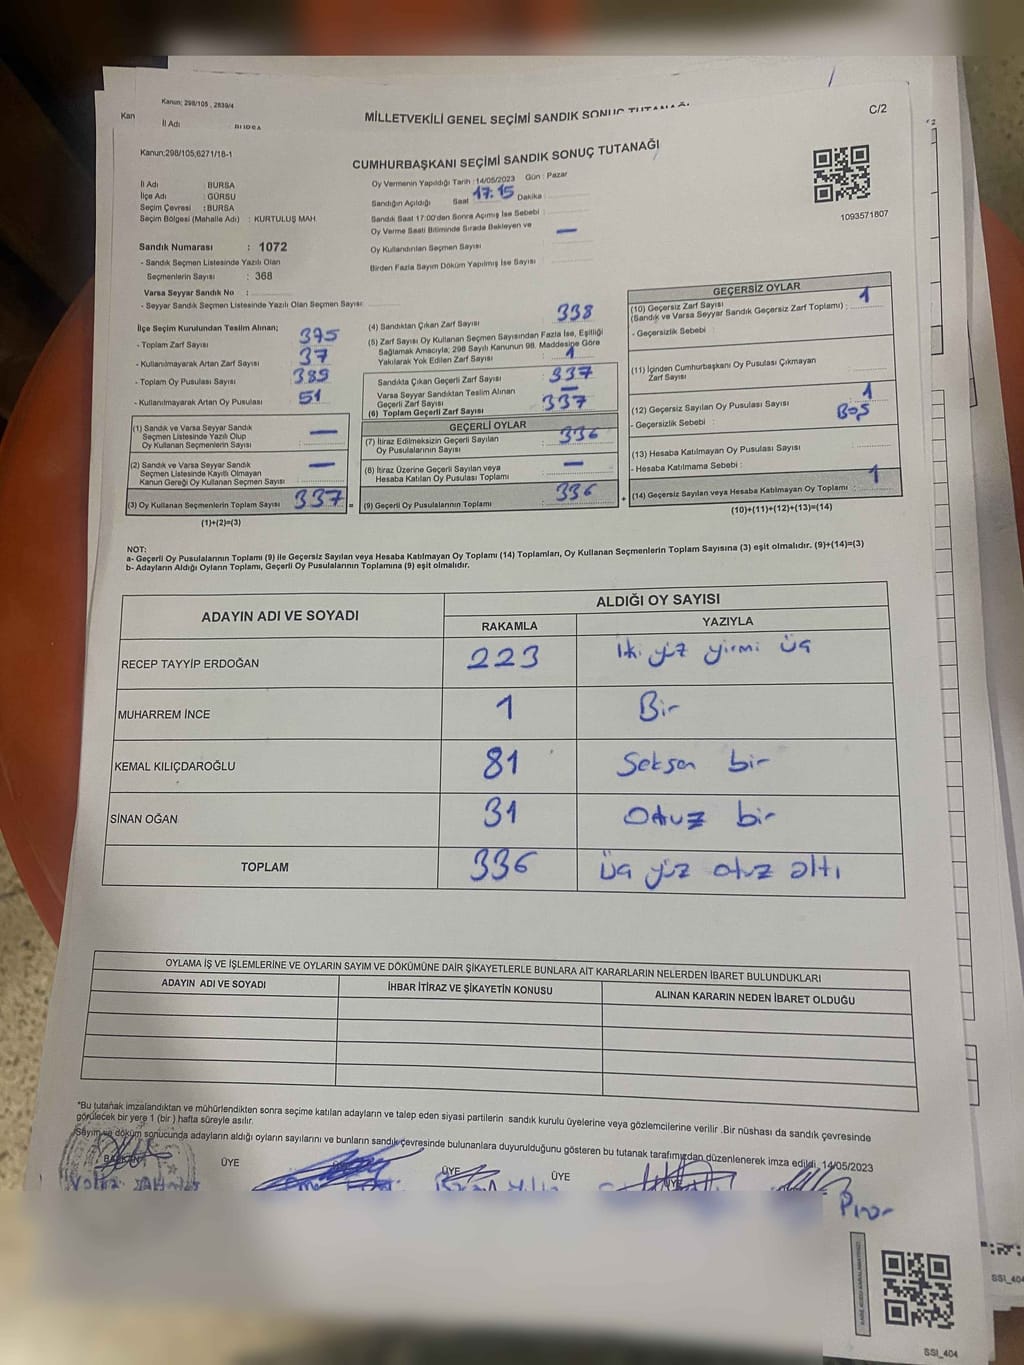 Kanun; 298/105 , 2839/4
Kan
İl Adı
C/2
MİLLETVEKİLİ GENEL SEÇİMİ SANDIK SONUÇ TUTANAĞI
Kanun:298/105,6271/18-1
CUMHURBAŞKANI SEÇİMİ SANDIK SONUÇ TUTANAĞI
1093571807
İl Adı : BURSA
İlçe Adı : GÜRSU
Seçim Çevresi : BURSA
Seçim Bölgesi (Mahalle Adı) : KURTULUŞ MAH.
Oy Vermenin Yapıldığı Tarih : 14/05/2023 Gün : Pazar
Sandığın Açıldığı Saat 17:15 Dakika :
Sandık Saat 17:00'den Sonra Açımış İse Sebebi :
Oy Verme Saati Bitiminde Sırada Bekleyen ve
Oy Kullandırılan Seçmen Sayısı —
Birden Fazla Sayım Döküm Yapılmış İse Sayısı :
Sandık Numarası : 1072
- Sandık Seçmen Listesinde Yazılı Olan
Seçmenlerin Sayısı : 368
Varsa Seyyar Sandık No :
- Seyyar Sandık Seçmen Listesinde Yazılı Olan Seçmen Sayısı:
İlçe Seçim Kurulundan Teslim Alınan;
- Toplam Zarf Sayısı 375
- Kullanılmayarak Artan Zarf Sayısı 37
- Toplam Oy Pusulası Sayısı 389
- Kullanılmayarak Artan Oy Pusulası 51
(1) Sandık ve Varsa Seyyar Sandık
Seçmen Listesinde Yazılı Olup
Oy Kullanan Seçmenlerin Sayısı —
(2) Sandık ve Varsa Seyyar Sandık
Seçmen Listesinde Kayıtlı Olmayan
Kanun Gereği Oy Kullanan Seçmen Sayısı —
(3) Oy Kullanan Seçmenlerin Toplam Sayısı 337 =
(1)+(2)=(3)
(4) Sandıktan Çıkan Zarf Sayısı 338
(5) Zarf Sayısı Oy Kullanan Seçmen Sayısından Fazla İse, Eşitliği
Sağlamak Amacıyla; 298 Sayılı Kanunun 98. Maddesine Göre
Yakılarak Yok Edilen Zarf Sayısı 1
Sandıkta Çıkan Geçerli Zarf Sayısı 337
Varsa Seyyar Sandıktan Teslim Alınan
Geçerli Zarf Sayısı —
(6) Toplam Geçerli Zarf Sayısı 337
GEÇERLİ OYLAR
(7) İtiraz Edilmeksizin Geçerli Sayılan
Oy Pusulalarının Sayısı 336
(8) İtiraz Üzerine Geçerli Sayılan veya
Hesaba Katılan Oy Pusulası Toplamı —
(9) Geçerli Oy Pusulalarının Toplamı 336 +
GEÇERSİZ OYLAR
(10) Geçersiz Zarf Sayısı
(Sandık ve Varsa Seyyar Sandık Geçersiz Zarf Toplamı) : 1
- Geçersizlik Sebebi :
(11) İçinden Cumhurbaşkanı Oy Pusulası Çıkmayan
Zarf Sayısı
(12) Geçersiz Sayılan Oy Pusulası Sayısı 1
- Geçersizlik Sebebi : BOŞ
(13) Hesaba Katılmayan Oy Pusulası Sayısı
- Hesaba Katılmama Sebebi :
(14) Geçersiz Sayılan veya Hesaba Katılmayan Oy Toplamı : 1
(10)+(11)+(12)+(13)=(14)
NOT:
a- Geçerli Oy Pusulalarının Toplamı (9) ile Geçersiz Sayılan veya Hesaba Katılmayan Oy Toplamı (14) Toplamları, Oy Kullanan Seçmenlerin Toplam Sayısına (3) eşit olmalıdır. (9)+(14)=(3)
b- Adayların Aldığı Oyların Toplamı, Geçerli Oy Pusulalarının Toplamına (9) eşit olmalıdır.
ADAYIN ADI VE SOYADI ALDIĞI OY SAYISI
RAKAMLA YAZIYLA
RECEP TAYYİP ERDOĞAN 223 iki yüz yirmi üç
MUHARREM İNCE 1 Bir
KEMAL KILIÇDAROĞLU 81 Seksen bir
SİNAN OĞAN 31 Otuz bir
TOPLAM 336 üç yüz otuz altı
OYLAMA İŞ VE İŞLEMLERİNE VE OYLARIN SAYIM VE DÖKÜMÜNE DAİR ŞİKAYETLERLE BUNLARA AİT KARARLARIN NELERDEN İBARET BULUNDUKLARI
ADAYIN ADI VE SOYADI İHBAR İTİRAZ VE ŞİKAYETİN KONUSU ALINAN KARARIN NEDEN İBARET OLDUĞU
*Bu tutanak imzalandıktan ve mühürlendikten sonra seçime katılan adayların ve talep eden siyasi partilerin sandık kurulu üyelerine veya gözlemcilerine verilir .Bir nüshası da sandık çevresinde
görülecek bir yere 1 (bir ) hafta süreyle asılır.
Sayım ve döküm sonucunda adayların aldığı oyların sayılarını ve bunların sandık çevresinde bulunanlara duyurulduğunu gösteren bu tutanak tarafımızdan düzenlenerek imza edildi. 14/05/2023
BAŞKAN ÜYE ÜYE ÜYE ÜYE
SSI_404
SSI_404